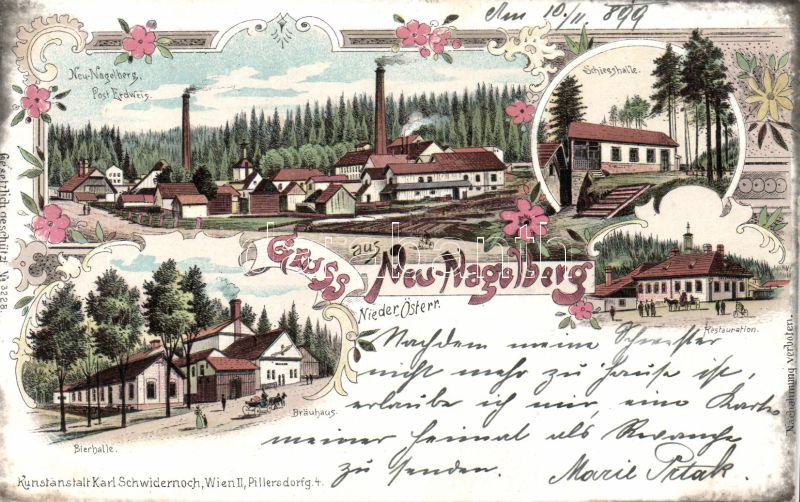 Am 10./11. 899
Neu-Nagelberg,
Post Erdweis.
Schiesshalle.
Gesetzlich geschützt № 3228.
Gruss aus Neu-Nagelberg
Nieder Österr.
Restauration.
Nachdem meine Schwester
nicht mehr zu hause ist,
erlaube ich mir, eine Karte
meiner heimat als Revanche
zu senden. Marie Ptak.
Bräuhaus.
Bierhalle.
Kunstanstalt Karl Schwidernoch, Wien II, Pillersdorfg. 4.
Nachahmung verboten.